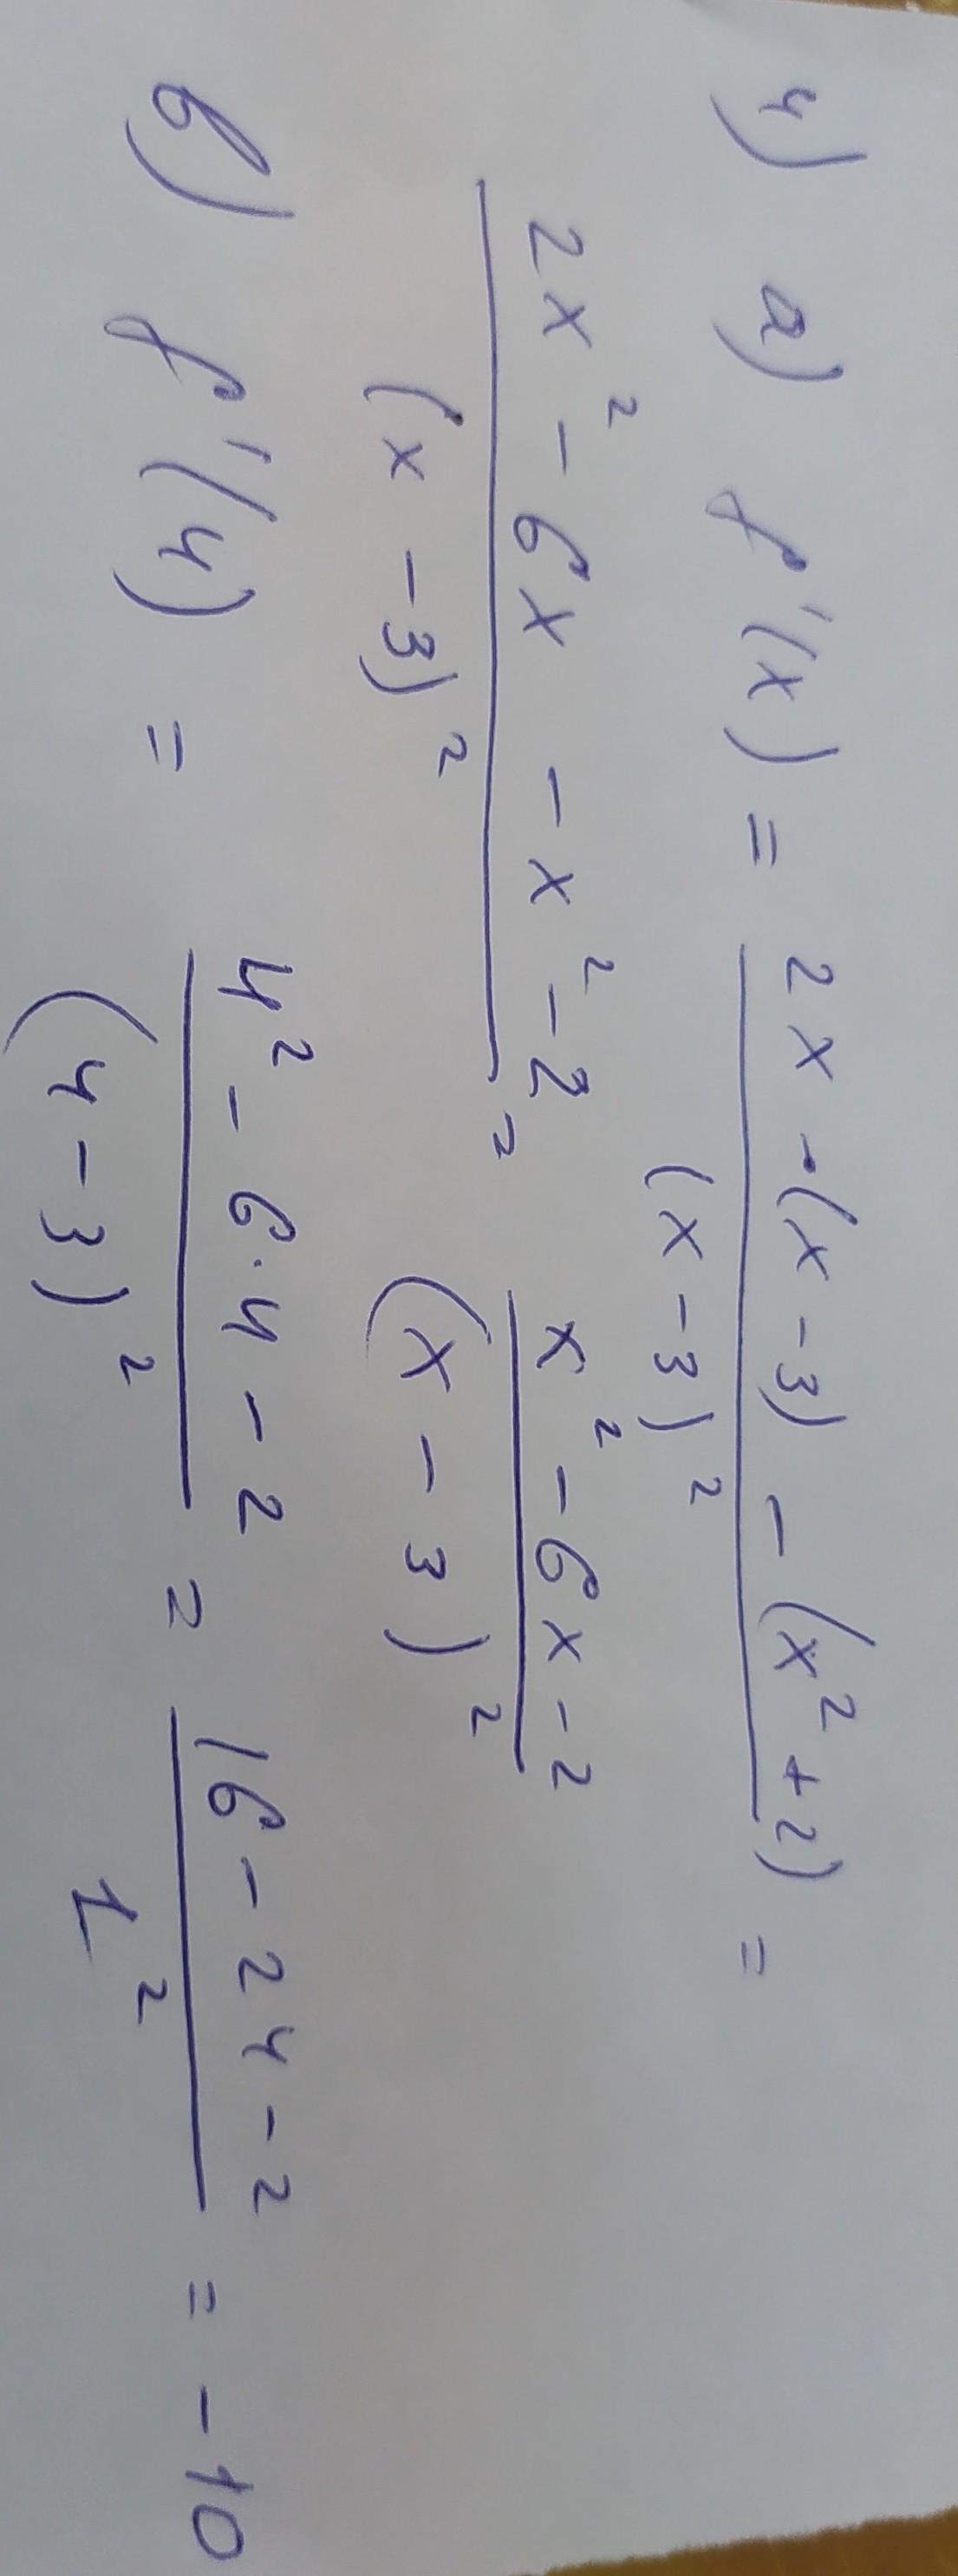 4) a) f'(x) = \frac{2x \cdot (x-3) - (x^2+2)}{(x-3)^2} =
\frac{2x^2-6x-x^2-2}{(x-3)^2} = \frac{x^2-6x-2}{(x-3)^2}
б) f'(4) = \frac{4^2-6·4-2}{(4-3)^2} = \frac{16-24-2}{1^2} = -10